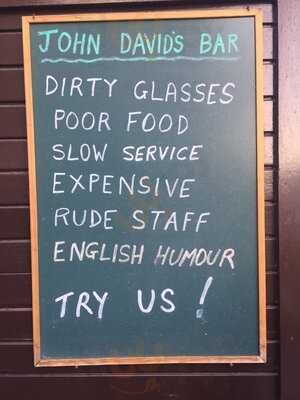 JOHN DAVID'S BAR
DIRTY GLASSES
POOR FOOD
SLOW SERVICE
EXPENSIVE
RUDE STAFF
ENGLISH HUMOUR
TRY US !